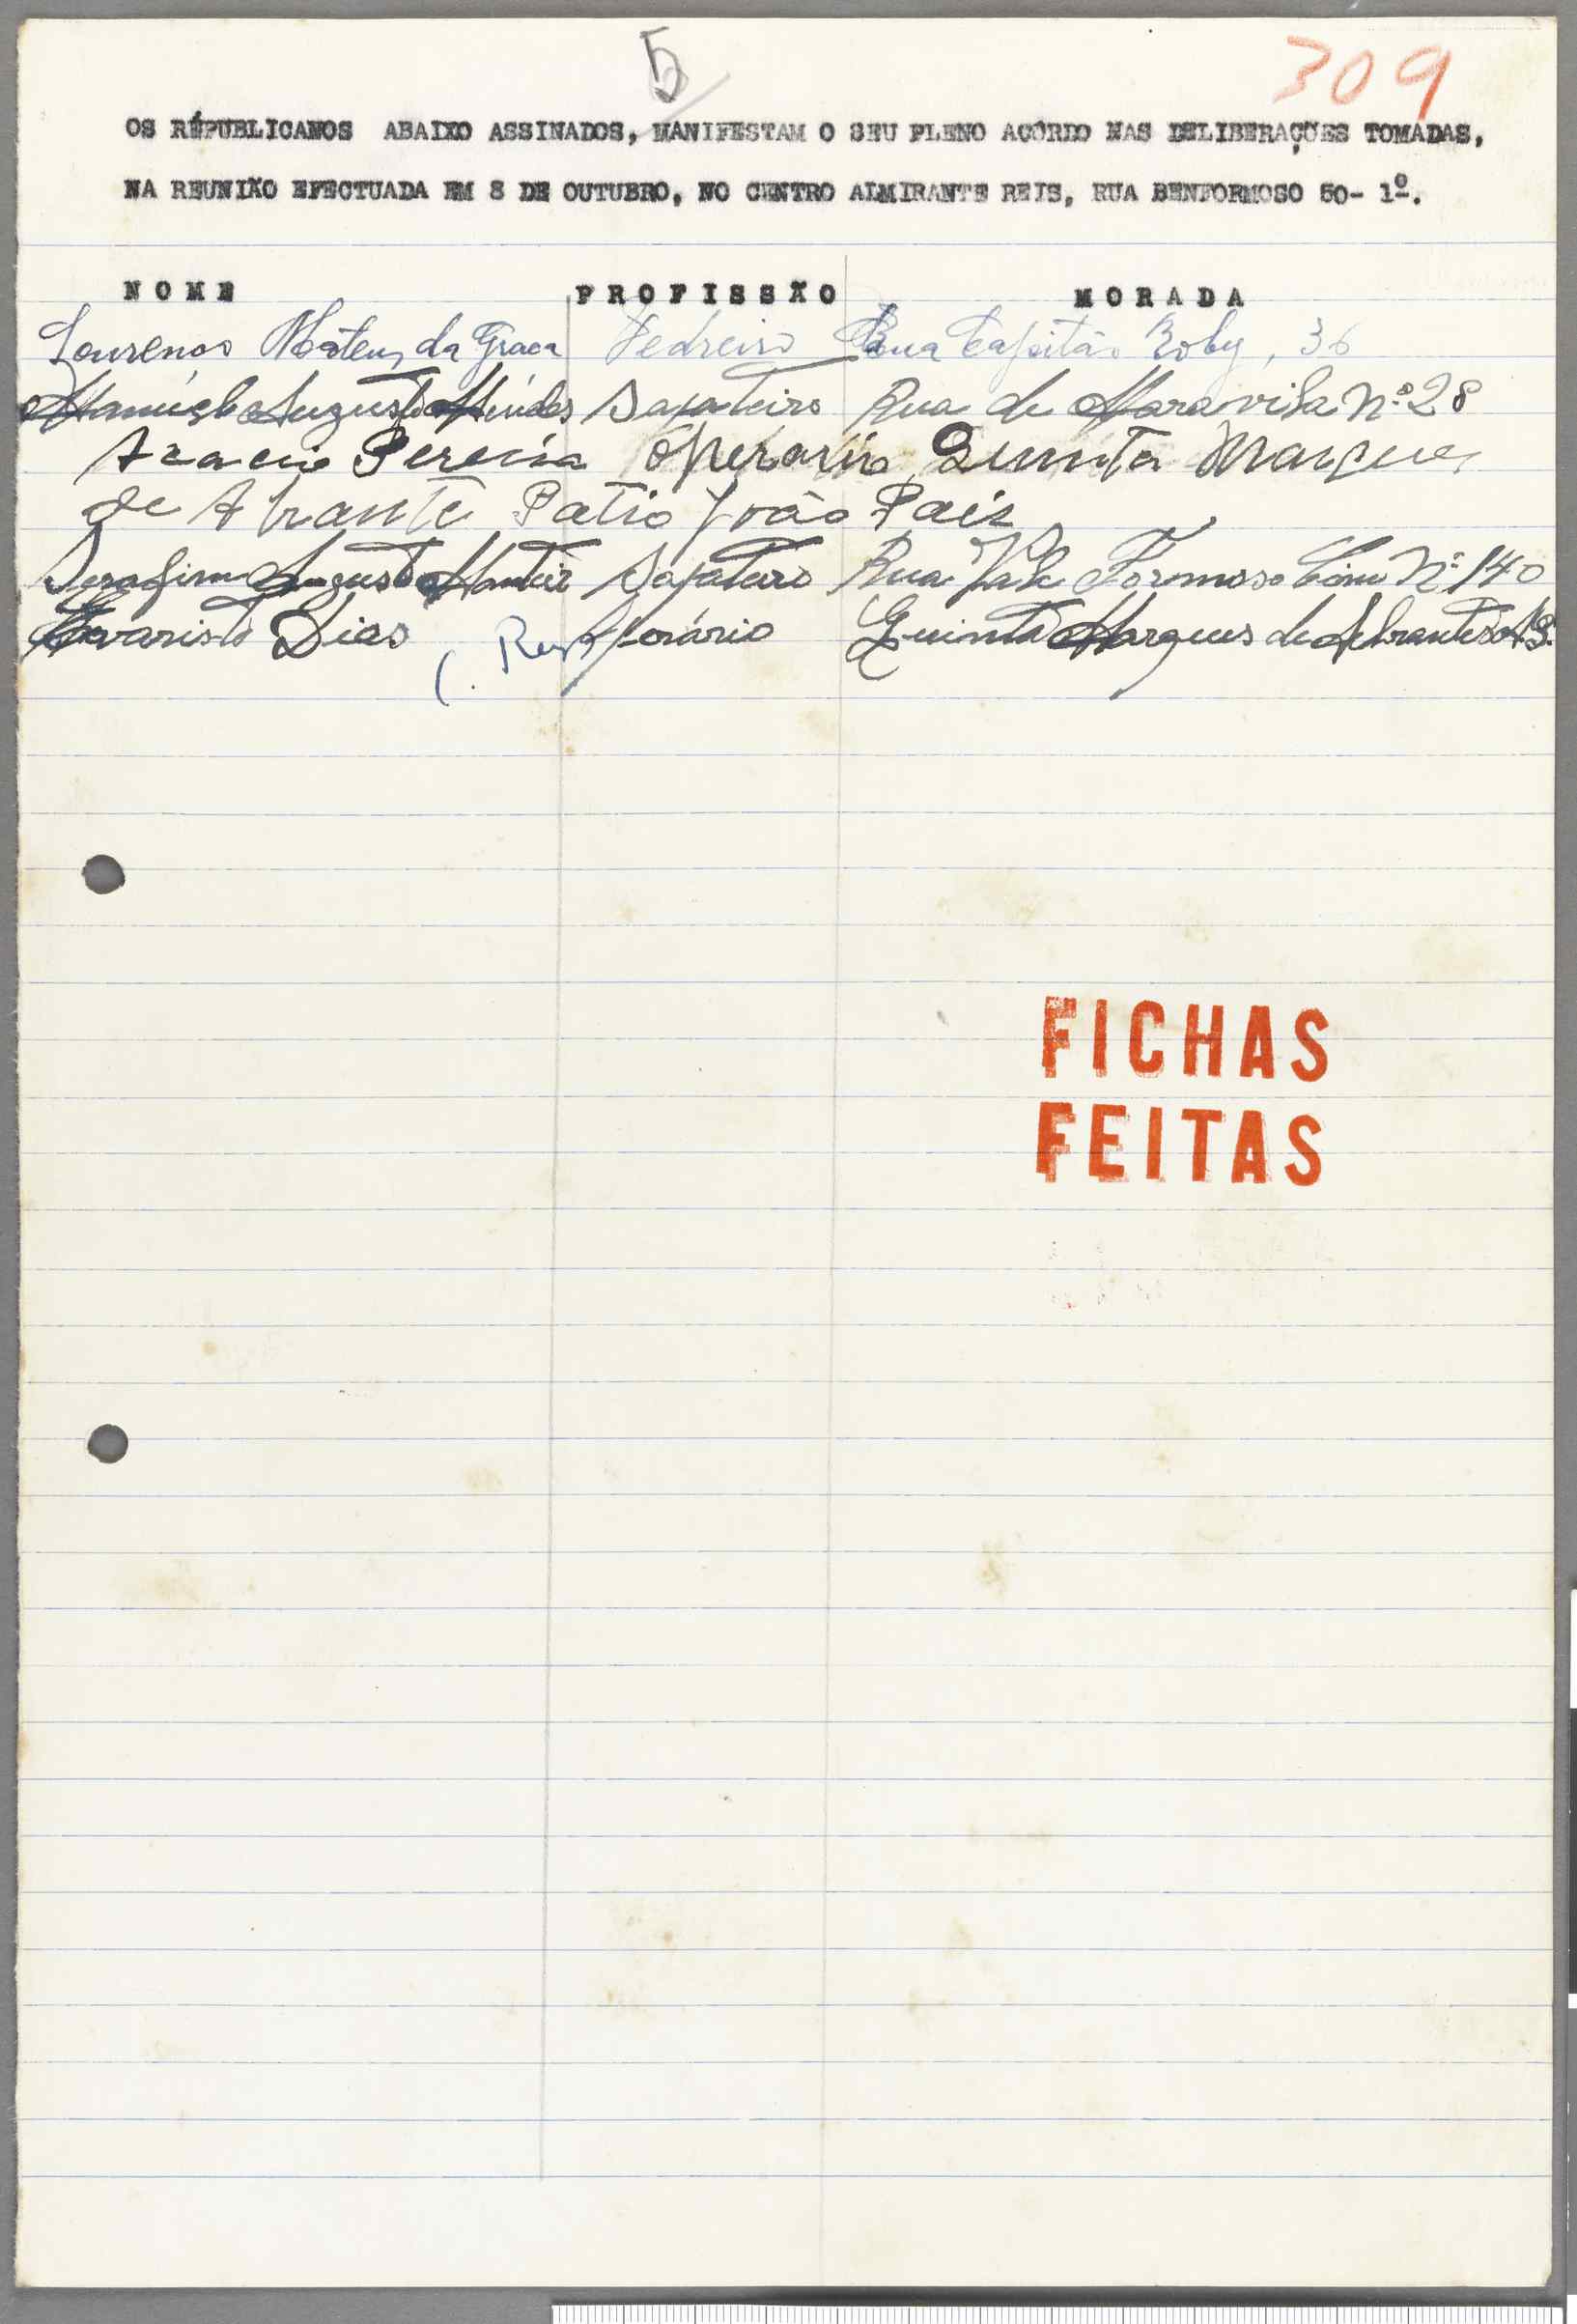 5
309
OS RÉPUBLICANOS ABAIXO ASSINADOS, MANIFESTAM O SEU PLENO ACÔRDO NAS DELIBERAÇÕES TOMADAS,
NA REUNIÃO EFECTUADA EM 8 DE OUTUBRO, NO CENTRO ALMIRANTE REIS, RUA BENFORMOSO 50- 1º.
NOME PROFISSÃO MORADA
Lourenço Mateus da Graça Pedreiro Rua Capitão Roby, 36
Manuel Augusto Mendes Sapateiro Rua de Maravila Nº 28
Acacio Pereira Operario Quinta Marques
de Abrante Patio João Paiz
Serafim Augusto Sapateiro Rua Vale Formoso Cima Nº 140
Evaristo Dias Operário Quinta Marques de Abrantes
FICHAS
FEITAS